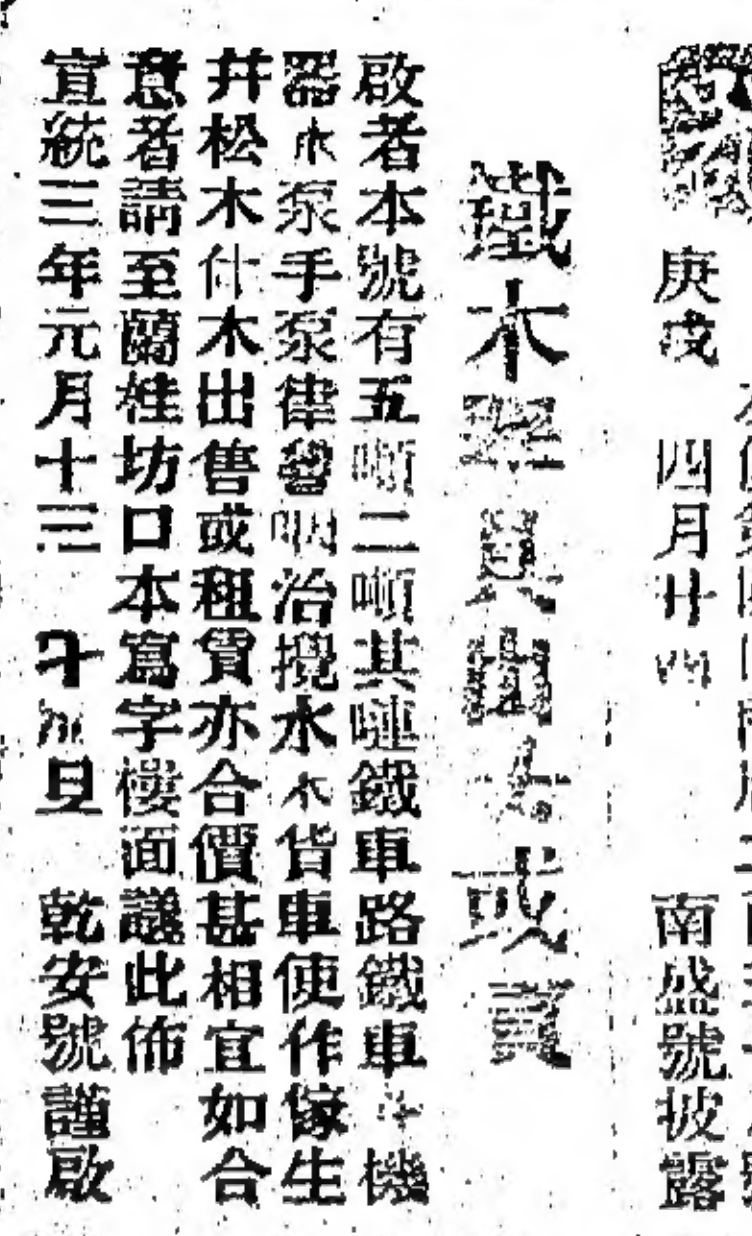 庚戌　四月廿四　南盛號披露
鐵木 具出 或賃
啟者本號有五噸二噸其嗹鐵車路鐵車斗機
器水泵手泵律 呬治攪水木貨車使作傢生
幷松木什木出售或租賃亦合價甚相宜如合
意者請至蘭桂坊口本寫字樓面議此佈
宣統三年元月十三　旦　乾安號謹啟